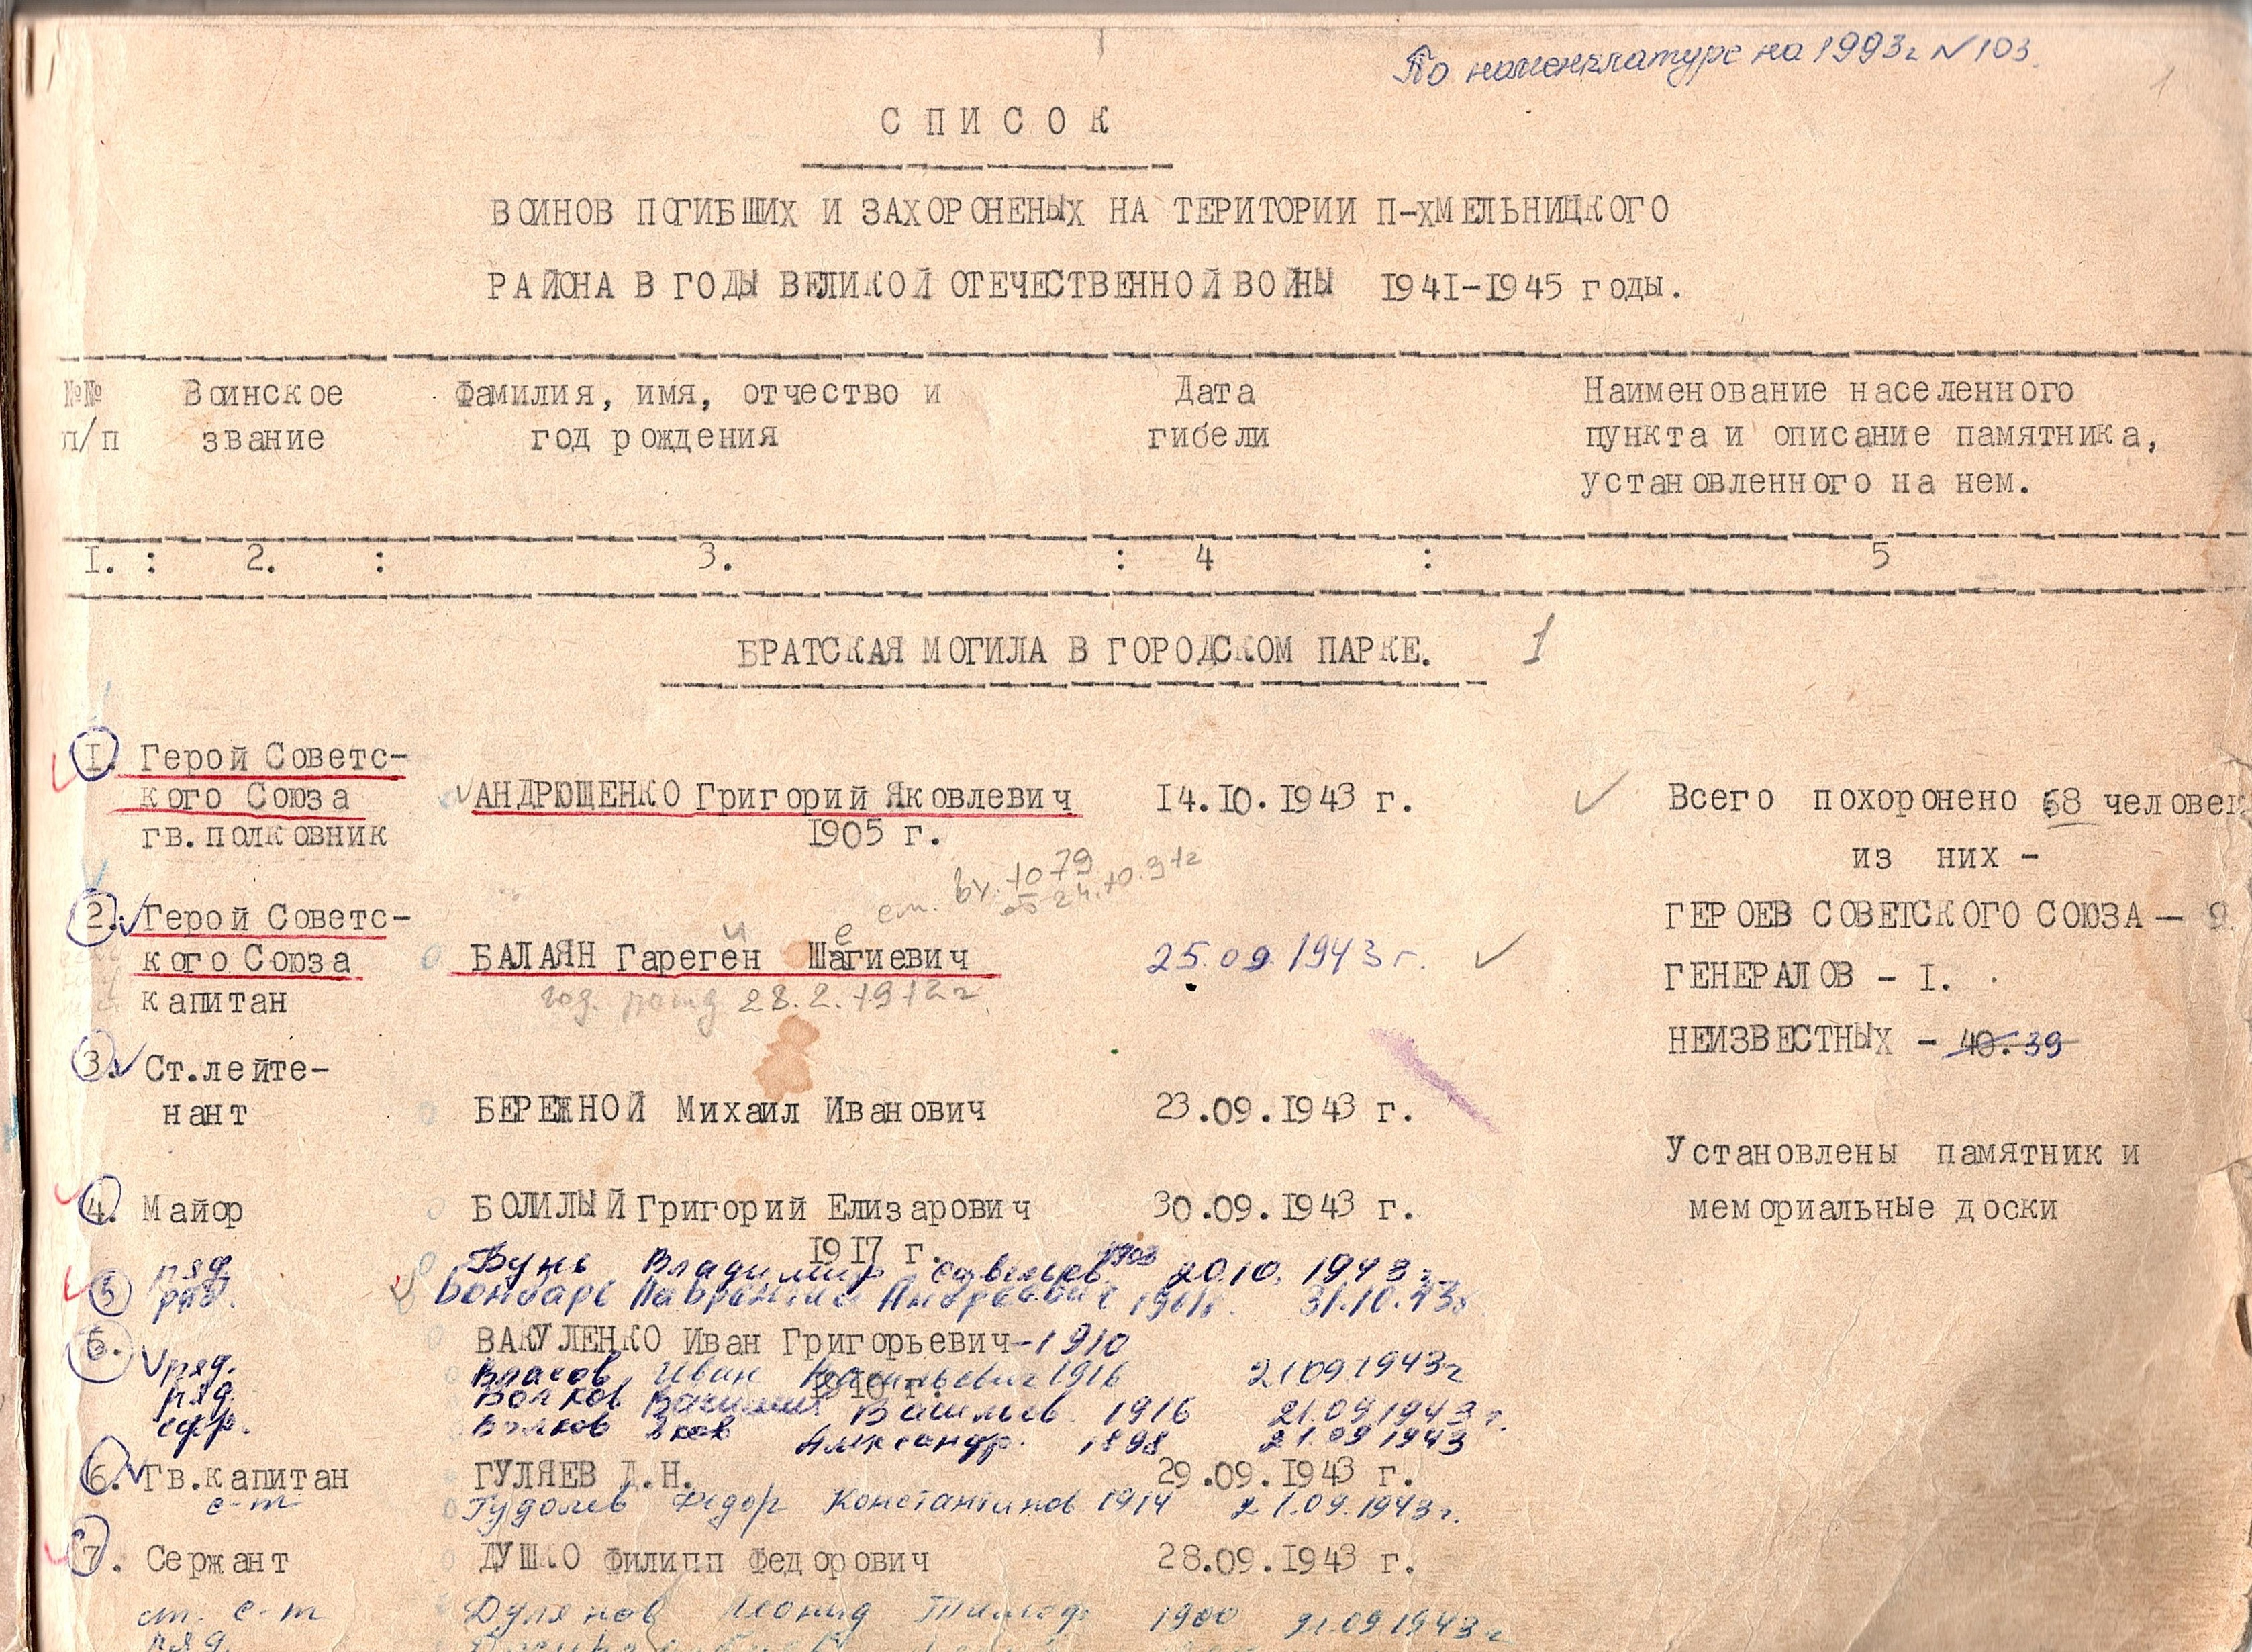 По номенклатуре на 1993г №103.
1
СПИСОК
ВОИНОВ ПОГИБШИХ И ЗАХОРОНЕНЫХ НА ТЕРИТОРИИ П-ХМЕЛЬНИЦКОГО
РАЙОНА В ГОДЫ ВЕЛИКОЙ ОТЕЧЕСТВЕННОЙ ВОЙНЫ 1941-1945 годы.
№№ Воинское Фамилия, имя, отчество и Дата Наименование населенного
п/п звание год рождения гибели пункта и описание памятника,
установленного на нем.
I. : 2. : 3. : 4 : 5
БРАТСКАЯ МОГИЛА В ГОРОДСКОМ ПАРКЕ. 1
I. Герой Советс-
кого Союза АНДРЮЩЕНКО Григорий Яковлевич 14.10.1943 г. Всего похоронено 68 человек
гв.полковник 1905 г.
из них -
вх. 1079
от 24.10.91г
2. Герой Советс- ГЕРОЕВ СОВЕТСКОГО СОЮЗА — 9.
и е
кого Союза БАЛАЯН Гареген Шагиевич 25.09.1943г. ГЕНЕРАЛОВ - I.
капитан год. рожд 28.2.1912г
НЕИЗВЕСТНЫХ - 40. 39
3. Ст.лейте-
нант БЕРЕЖНОЙ Михаил Иванович 23.09.1943 г.
Установлены памятник и
4. Майор БОЛИЛЫЙ Григорий Елизарович 30.09.1943 г. мемориальные доски
1917 г.
ряд Бунь Владимир Савельев. 1903 20.10.1943г
5 ряд. Бондарь Лаврентий Андреевич 31.10.43г
6. ВАКУЛЕНКО Иван Григорьевич-1910
ряд. Власов Иван 1916 21.09.1943г
1910 г.
ряд. Волков Василий Васильев. 1916 21.09.1943г.
ефр. Волков Яков Александр. 1898 21.09.1943
6. Гв.капитан ГУЛЯЕВ Д.Н. 29.09.1943 г.
с-т Гудолев Федор Константинов 1914 21.09.1943г.
7. Сержант ДУШКО Филипп Федорович 28.09.1943 г.
ст. с-т Дулянов Леонид Тимоф. 1900 21.09.1943г
ряд.